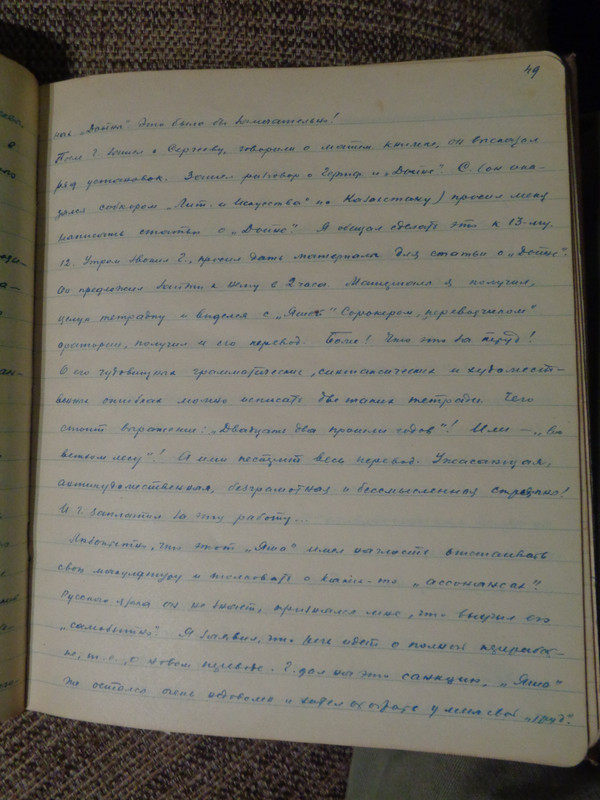 49
„Дойна“ Это было бы замечательно!
После Г. зашел к Сергееву, говорили о матем. книжке, он высказал
ряд установок. Зашел разговор о Гершф и „Дойне“. С. (он ока-
зался собкором „Лит. и Искусства“ по Казахстану) просил меня
написать статью о „Дойне“. Я обещал сделать это к 13-му.
12. Утром звонил Г., просил дать материалы для статьи о „Дойне“.
Он предложил зайти к нему в 2 часа. Материалы я получил,
целую тетрадку и виделся с „Яшей“ Сорокером, „переводчиком“
оратории, получил и его перевод. Боже! Что это за труд!
О его чудовищных грамматических, синтаксических и художест-
венных ошибках можно исписать две таких тетради. Чего
стоит выражение: „Двадцать два прошли годов“! Или – „Во
всяком лесу“! А ими пестрит весь перевод. Ужасающая,
антихудожественная, безграмотная и бессмысленная стряпня!
И Г. заплатил за эту работу...
Любопытно, что этот „Яша“ имел наглость отстаивать
свою макулатуру и толковать о каких-то „ассонансах“!
Русского языка он не знает, признался мне, что выучил его
„самобытно“. Я заявил, что речь идет о полной переработ-
ке, т. е. о новом переводе. Г. дал на это санкцию, „Яша“
же остался очень недоволен и хотел отобрать у меня свой „труд“.